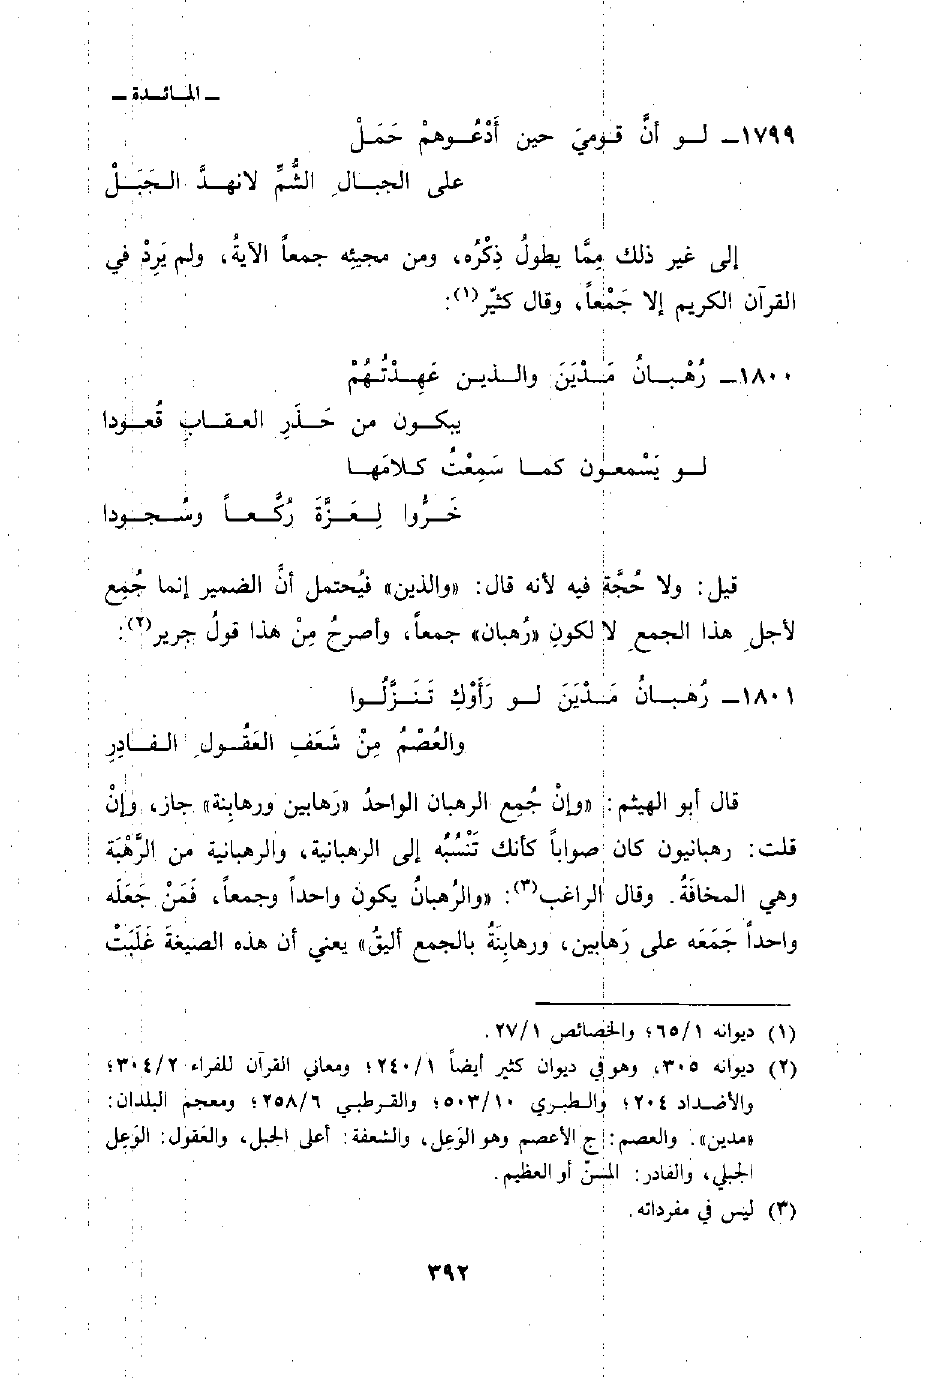 ـ المائدة ـ
١٧٩٩ـ لو أنَّ قوميَ حين أَدْعُوهمْ حَمَلْ
على الجبالِ الشُّمِّ لانهدَّ الجَبَلْ
إلى غير ذلك مِمَّا يطولُ ذِكْرُه، ومن مجيئِه جمعاً الآيةُ، ولم يَرِدْ في
القرآن الكريم إلا جَمْعاً، وقال كثيّر(١):
١٨٠٠ـ رُهْبانُ مَدْيَنَ والذين عَهِدْتُهُمْ
يبكون من حَذَرِ العقابِ قُعودا
لو يَسْمعون كما سَمِعْتُ كلامَها
خَرُّوا لِعَزَّةَ رُكَّعاً وسُجودا
قيل: ولا حُجَّة فيه لأنه قال: «والذين» فيُحتمل أنَّ الضمير إنما جُمِع
لأجلِ هذا الجمعِ لا لكونِ «رُهبان» جمعاً، وأصرحُ مِنْ هذا قولُ جرير(٢):
١٨٠١ـ رُهبانُ مَدْيَنَ لو رَأَوْكِ تَنَزَّلُوا
والعُصْمُ مِنْ شَعَفِ العَقُولِ الفادِرِ
قال أبو الهيثم: «وإنْ جُمِع الرهبان الواحدُ «رَهابين ورهابِنة» جاز، وإنْ
قلت: رهبانيون كان صواباً كأنك تَنْسُبُه إلى الرهبانية، والرهبانية من الرَّهْبَة
وهي المخافَةُ. وقال الراغب(٣): «والرُهبانُ يكون واحداً وجمعاً، فَمَنْ جَعَلَه
واحداً جَمَعَه على رَهابين، ورهابِنَةُ بالجمع أليقُ» يعني أن هذه الصيغةَ غَلَبَتْ
(١) ديوانه ٦٥/١؛ والخصائص ٢٧/١.
(٢) ديوانه ٣٠٥، وهو في ديوان كثير أيضاً ٢٤٠/١؛ ومعاني القرآن للفراء ٣٠٤/٢؛
والأضداد ٢٠٤؛ والطبري ٥٠٣/١٠؛ والقرطبي ٢٥٨/٦؛ ومعجم البلدان:
«مدين». والعصم: ج الأعصم وهو الوَعِل، والشعفة: أعلى الجبل، والعَقول: الوَعِل
الجبلي، والفادر: المسنّ أو العظيم.
(٣) ليس في مفرداته.
٣٩٢